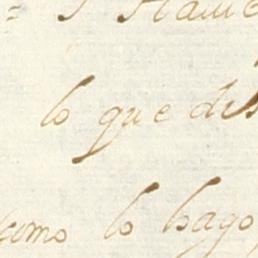 lo que dis
como lo hago,